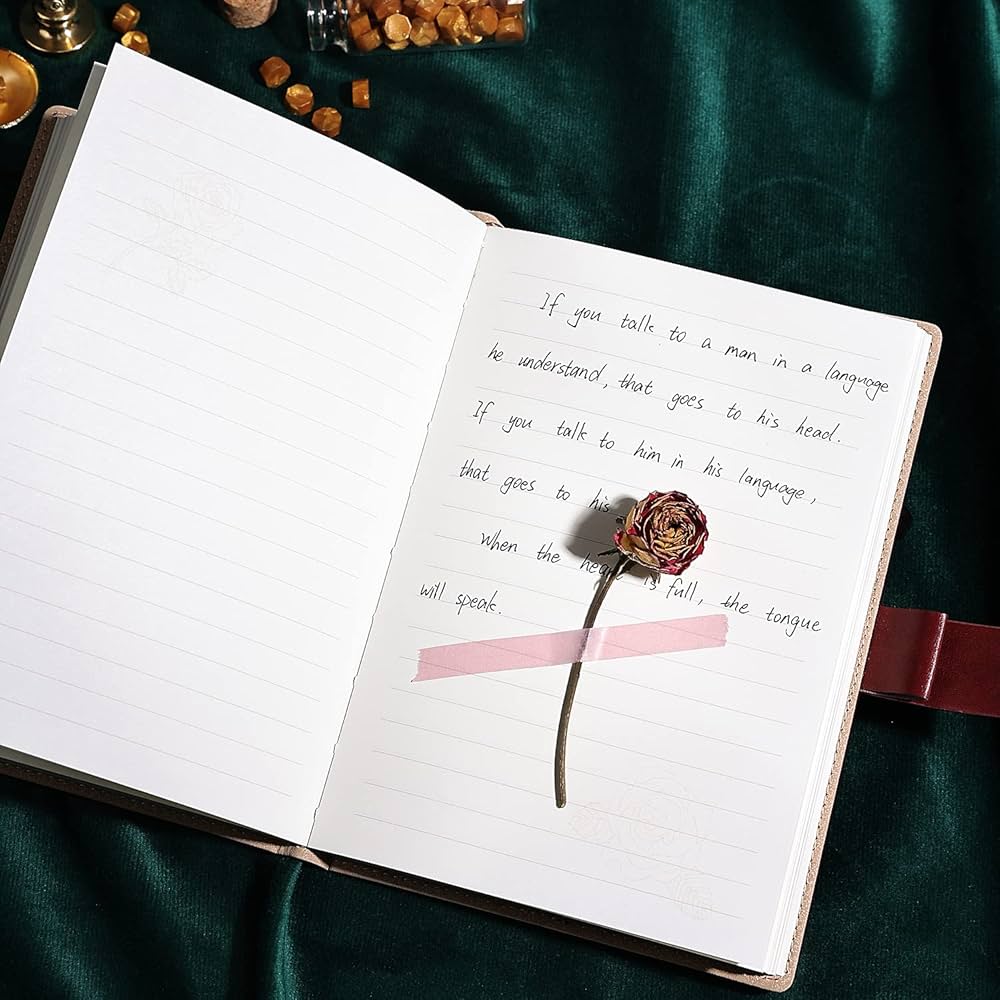 If you talk to a man in a language
he understand, that goes to his head.
If you talk to him in his language,
that goes to his
when the heart is full, the tongue
will speak.